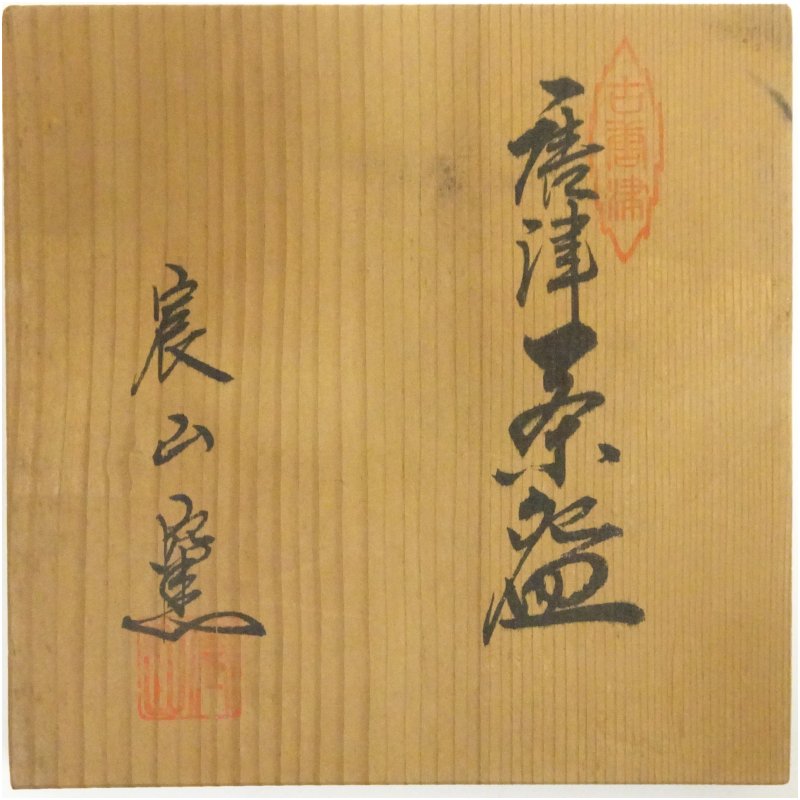 古唐津
唐津茶盌
宸山窯